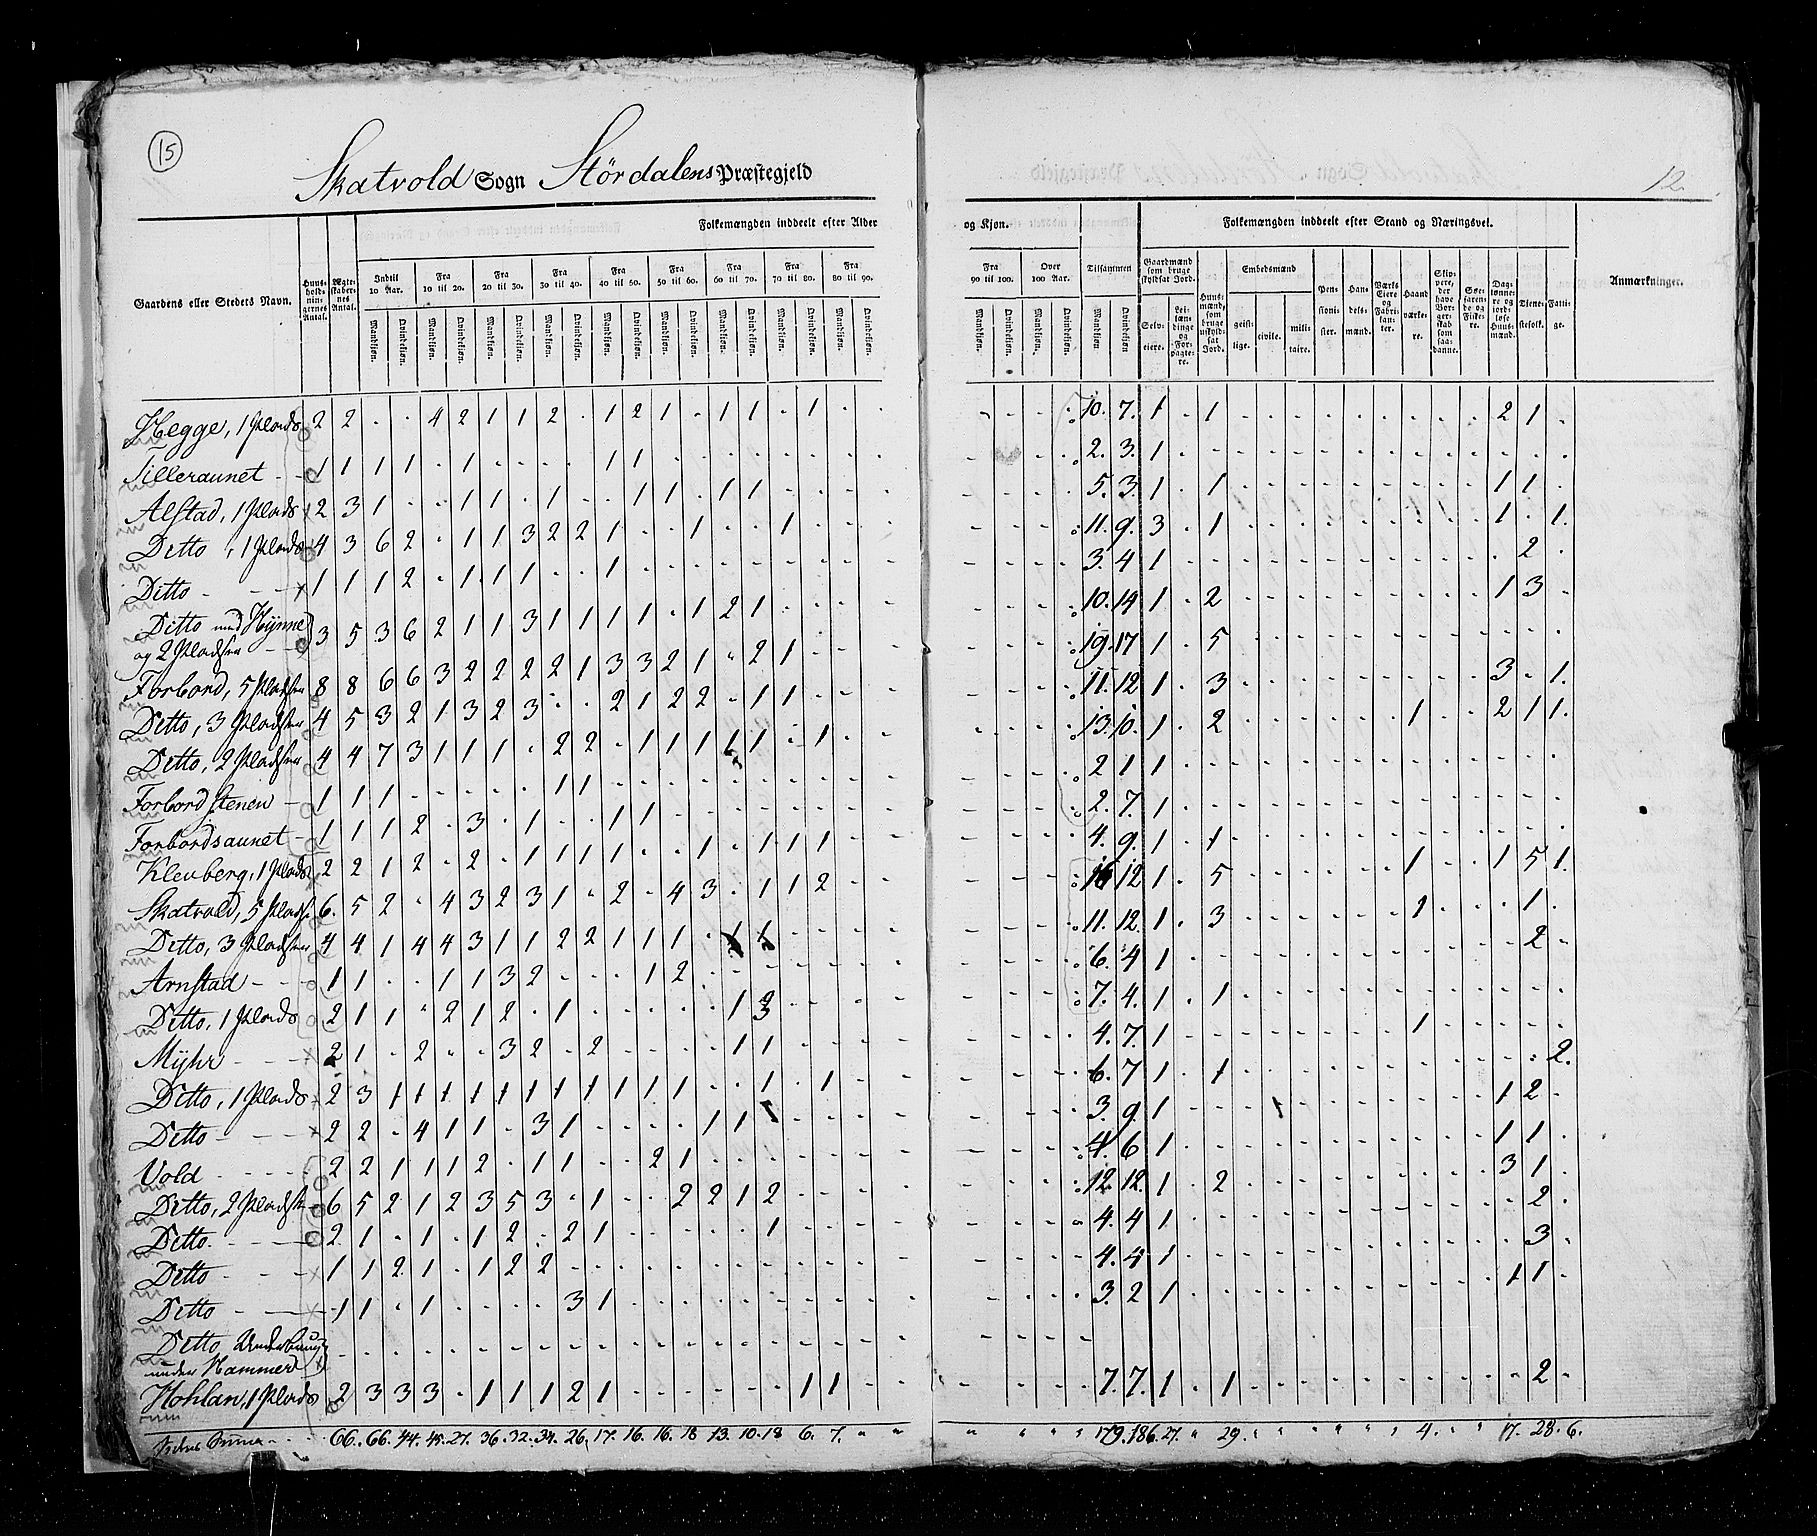 15
Skatvold Sogn Stördalens Præstegjeld
12.
Folkemængden inddeelt efter Alder
og Kjøn.
Folkemængden inddeelt efter Stand og Næringsvei.
Gaardens eller Stedets Navn.
Huusholdningernes Antal.
Ægteskabernes Antal.
Indtil 10 Aar.
Fra 10 til 20.
Fra 20 til 30.
Fra 30 til 40.
Fra 40 til 50.
Fra 50 til 60.
Fra 60 til 70.
Fra 70 til 80.
Fra 80 til 90.
Fra 90 til 100.
Over 100 Aar.
Tilsammen
Mandkjøn. Qvindekjøn.
Gaardmænd som bruge skyldsat Jord.
Selveiere.
Leilændinge og Forpagtere.
Huusmænd, som bruge uskyldsat Jord.
Embedsmænd
geistlige. civile. militaire.
Pensionister.
Handelsmænd.
Værks Eiere og Fabrikanter.
Haandværkere.
Skippere, der have Borgerskab som saadanne.
Søefarende og Fiskere.
Daglønnere og jordløse Huusmænd.
Tienestefolk.
Fattige.
Anmærkninger.
Hegge, 1 Plads 2 2 . . 4 2 1 1 2 . 1 2 1 . 1 1 . 1 . . 10. 7. 1 . 1 2 1
Tilleraunet 1 1 1 1 . 1 . . . . 1 1 2. 3. 1
Alstad, 1 Plads 2 3 1 . . 1 1 . 1 . . 1 1 . 1 1 5. 3. 1 . 1 1 1
Ditto, 1 Plads 4 3 6 2 . 1 1 3 2 2 1 . . 1 . . 1 11. 9. 3 . 1 1 . 1.
Ditto 1 1 1 2 . 1 1 1 . . 1 3. 4 1 2
Ditto med Hynne
og 2 Pladser 3 5 3 6 2 1 1 3 1 1 1 1 . 1 2 1 10. 14 1 . 2 1 3
Forbord, 5 Pladser 8 8 6 6 3 2 2 2 2 1 3 3 2 1 . 2 1 19. 17 1 . 5
Ditto, 3 Pladser 4 5 3 2 1 3 2 3 . . 2 1 2 2 . 1 1 11. 12 1 . 3 3 . 1.
Ditto, 2 Pladser 4 4 7 3 1 1 1 . 2 2 . 1 1 1 1 1 . 1 13. 10. 1 . 2 1 2 1 1.
Forbordstenen 1 1 1 . . . . . 1 1 2 1 1
Forbordsaunet 1 1 1 2 . 3 . 1 . . 1 1 2. 7. 1
Klevberg, 1 Plads 2 2 1 2 . 2 . 1 1 1 1 . . 1 . 1 1 1 4. 9. 1 . 1
Skatvold, 5 Pladser 6. 5 2 . 4 3 2 3 1 . 2 . 4 3 . 1 1 2 16 12 1 . 5 1 1 5 1.
Ditto, 3 Pladser 4 4 1 4 4 3 1 1 2 2 1 1 1 . 1 1 11. 12. 1 . 3 1 1
Arnstad 1 1 . . 1 1 3 2 . . . 1 2 6. 4 1 2
Ditto, 1 Plads 2 1 1 . 2 1 2 . 1 . . . . . 1 3 7. 4. 1 . 1
Myhr 2 1 . 2 . . 3 2 . 2 . . . . 1 1 4. 7. 1 1 2.
Ditto, 1 Plads 2 3 1 1 1 1 1 1 1 1 1 1 1 . . 1 . 1 6. 7 1 . 1 1 2
Ditto 2 2 . 4 1 1 . 3 1 . . . . 1 1 3. 9. 1 1 1
Vold 2 2 1 1 1 2 . 1 1 . . 2 1 4. 6 1 3 1
Ditto, 2 Pladser 6 5 2 1 2 3 5 3 . 1 . . 2 2 1 2 12. 12. 1 . 2 2
Ditto 2 1 . 1 . 1 2 . 2 1 . . . . . 1 4. 4 1 3
Ditto 1 1 2 1 . 1 2 2 4. 4 1 1 1
Ditto 1 1 . 1 . . . . 3 1 3. 2 1
Ditto
under Hammer
Hohlan, 1 Plads 2 3 3 3 . 1 1 1 2 1 . . . . . . 1 1 7. 7. 1 . 1 2
66. 66. 44. 45. 27. 36. 32. 34. 26. 17. 16. 16. 18 13. 10. 18 6. 7. 179. 186. 27. 29. 4. 17. 28. 6.